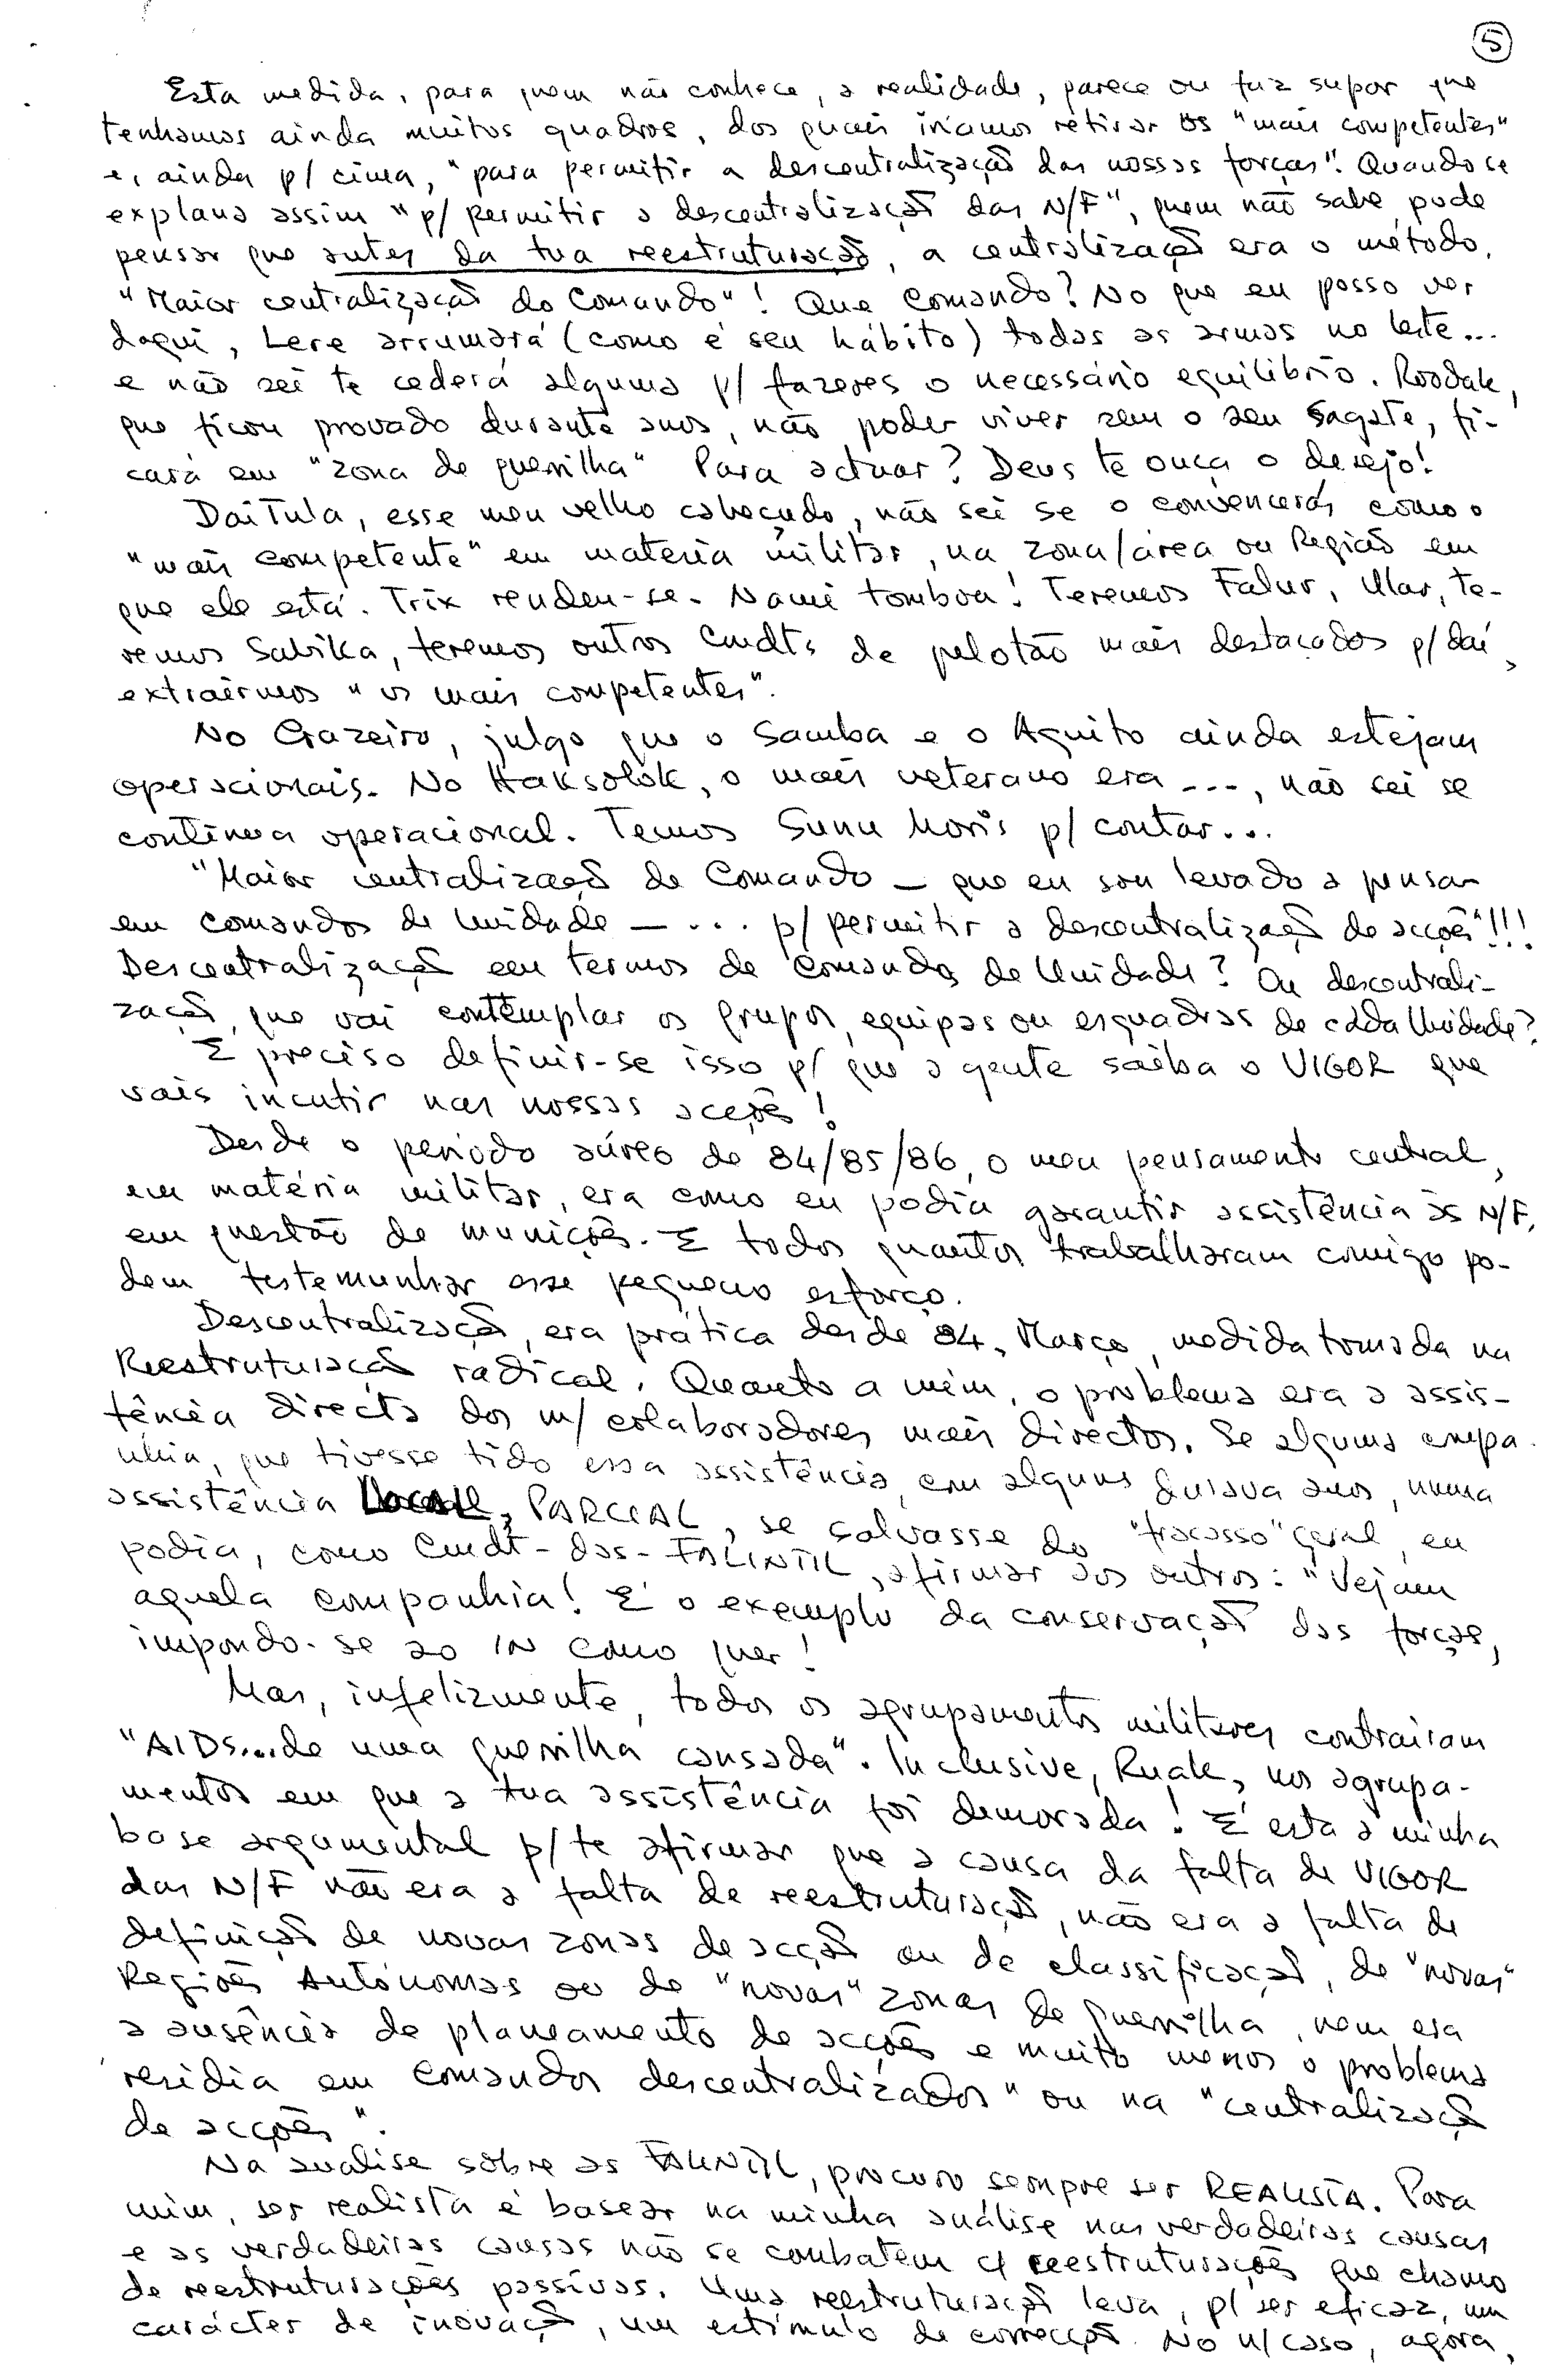 5
Esta medida, para quem não conhece, a realidade, parece ou faz supor que
tenhamos ainda muitos quadros, dos quais iríamos retirar os "mais competentes"
e, ainda p/ cima, "para permitir a descentralização das nossas forças". Quando se
explana assim "p/ permitir a descentralização das N/F", quem não sabe, pode
pensar que antes da tua reestruturação, a centralização era o método.
"Maior centralização do Comando"! Que Comando? No que eu posso ver
daqui, Lere arrumará (como é seu hábito) todas as armas no leste...
e não sei te cederá alguma p/ fazeres o necessário equilíbrio. Roodak,
que ficou provado durante anos, não poder viver sem o seu Sagate, fi-
cará em "zona de guerrilha" Para actuar? Deus te ouça o desejo!
DaiTula, esse meu velho cabeçudo, não sei se o convencerás como o
"mais competente" em matéria militar, na zona/área ou Região em
que ele está. Trix rendeu-se. Nami tombou! Teremos Falur, Ular, te-
remos Sabika, teremos outros Cmdts de pelotão mais destacados p/ daí,
extrairmos "os mais competentes".
No Cruzeiro, julgo que o Samba e o Aquito ainda estejam
operacionais. No Haksolok, o mais veterano era ..., não sei se
continua operacional. Temos Sunu Moris p/ contar...
"Maior centralização de Comando — que eu sou levado a pensar
em comandos de Unidade — ... p/ permitir a descentralização de acções"!!!
Descentralização em termos de Comandos de Unidade? Ou descentrali-
zação, que vai contemplar os grupos, equipas ou esquadras de cada Unidade?
É preciso definir-se isso p/ que a gente saiba o VIGOR que
vais incutir nas nossas acções!
Desde o período áureo de 84/85/86, o meu pensamento central,
em matéria militar, era como eu podia garantir assistência às N/F,
em questão de munições. E todos quantos trabalharam comigo po-
dem testemunhar esse pequeno esforço.
Descentralização, era prática desde 84, Março, medida tomada na
Reestruturação radical. Quanto a mim, o problema era a assis-
tência directa dos m/ colaboradores mais directos. Se alguma compa-
nhia, que tivesse tido essa assistência, em alguns anos, numa
assistência PARCIAL, se salvasse do "fracasso" geral, eu
podia, como Cmdt-das-FALINTIL, afirmar aos outros: "Vejam
aquela companhia! É o exemplo da conservação das forças,
impondo-se ao IN como quer!
Mas, infelizmente, todos os agrupamentos militares contraíram
"AIDs...de uma guerrilha cansada". Inclusive, Ruak, nos agrupa-
mentos em que a tua assistência foi demorada! É esta a minha
base argumental p/ te afirmar que a causa da falta de VIGOR
das N/F não era a falta de reestruturação, não era a falta de
definição de novas zonas de acção ou de classificação, de "novas"
Regiões Autónomas ou de "novas" zonas de guerrilha, nem era
a ausência de planeamento de acções e muito menos o problema
residia em comandos descentralizados" ou na "centralização
de acções".
Na análise sobre as FALINTIL, procuro sempre ser REALISTA. Para
mim, ser realista é basear na minha análise nas verdadeiras causas
e as verdadeiras causas não se combatem c/ reestruturações que chamo
de reestruturações passivas. Uma reestruturação leva, p/ ser eficaz, um
carácter de inovação, um estímulo de correcção. No n/ caso, agora,